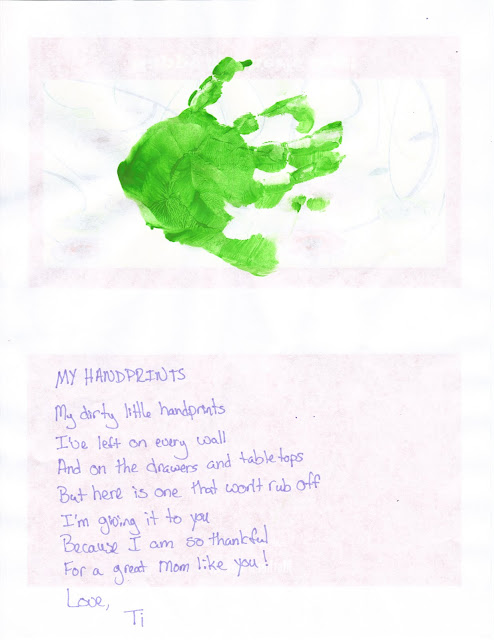 MY HANDPRINTS
My dirty little handprints
I've left on every wall
And on the drawers and tabletops
But here is one that won't rub off
I'm giving it to you
Because I am so thankful
For a great Mom like you!
Love,
Ti